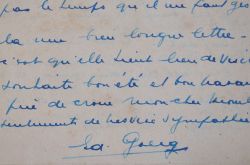 pas le temps qu'il me faut
la une bien longue lettre
c'est qu'elle tient lieu de visite
souhaite bon été et bon travail
prié de croire mon cher
sentiments de très vive sympathie
Ed. Goerg